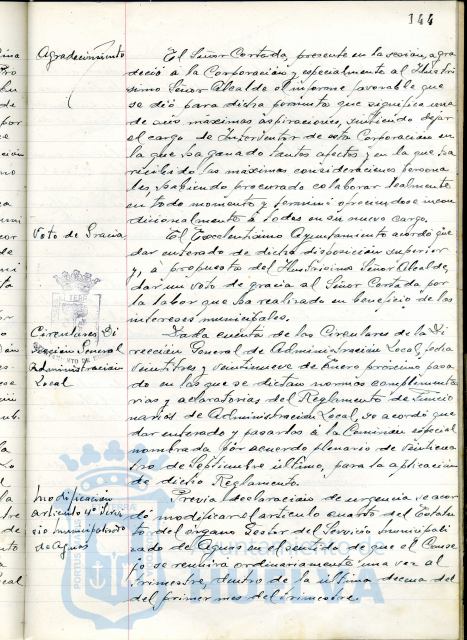 144
Agradecimiento
El Señor Cortada, presente en la sesión, agra
deció a la Corporación y especialmente al Ilustrí
simo Señor Alcalde el informe favorable que
se dió para dicha permuta que significa una
de sus máximas aspiraciones, sintiendo dejar
el cargo de Interventor de esta Corporación en
la que ha ganado tantos afectos y en la que ha
recibido las máximas consideraciones persona
les, habiendo procurado colaborar lealmente
en todo momento y terminó ofreciendose incon
dicionalmente a todos en su nuevo cargo.
Voto de Gracia
El Excelentísimo Ayuntamiento acordó que
dar enterado de dicha disposición superior
y, a propuesta del Ilustrísimo Señor Alcalde,
dar un voto de gracia al Señor Cortada por
la labor que ha realizado en beneficio de los
intereses municipales.
Circulares Di
rección General
Administración
Local
Dada cuenta de las Circulares de la Di
rección General de Administración Local, fecha
veintitres y veintinueve de Enero próximo pasa
do en las que se dictan normas complementa
rias y aclaratorias del Reglamento de Funcio
narios de Administración Local, se acordó que
dar enterado y pasarlas a la Comisión especial
nombrada por acuerdo plenario de veinticua
tro de Septiembre último, para la aplicación
de dicho Reglamento.
Modificación
artículo 4º Servi
cio municipalizado
de Aguas
Previa declaración de urgencia se acor
dó modificar el artículo cuarto del Estatu
to del órgano Gestor del Servicio Municipali
zado de Aguas en el sentido de que el Conse
jo se reunirá ordinariamente una vez al
trimestre, dentro de la última decena del
del primer mes del trimestre.